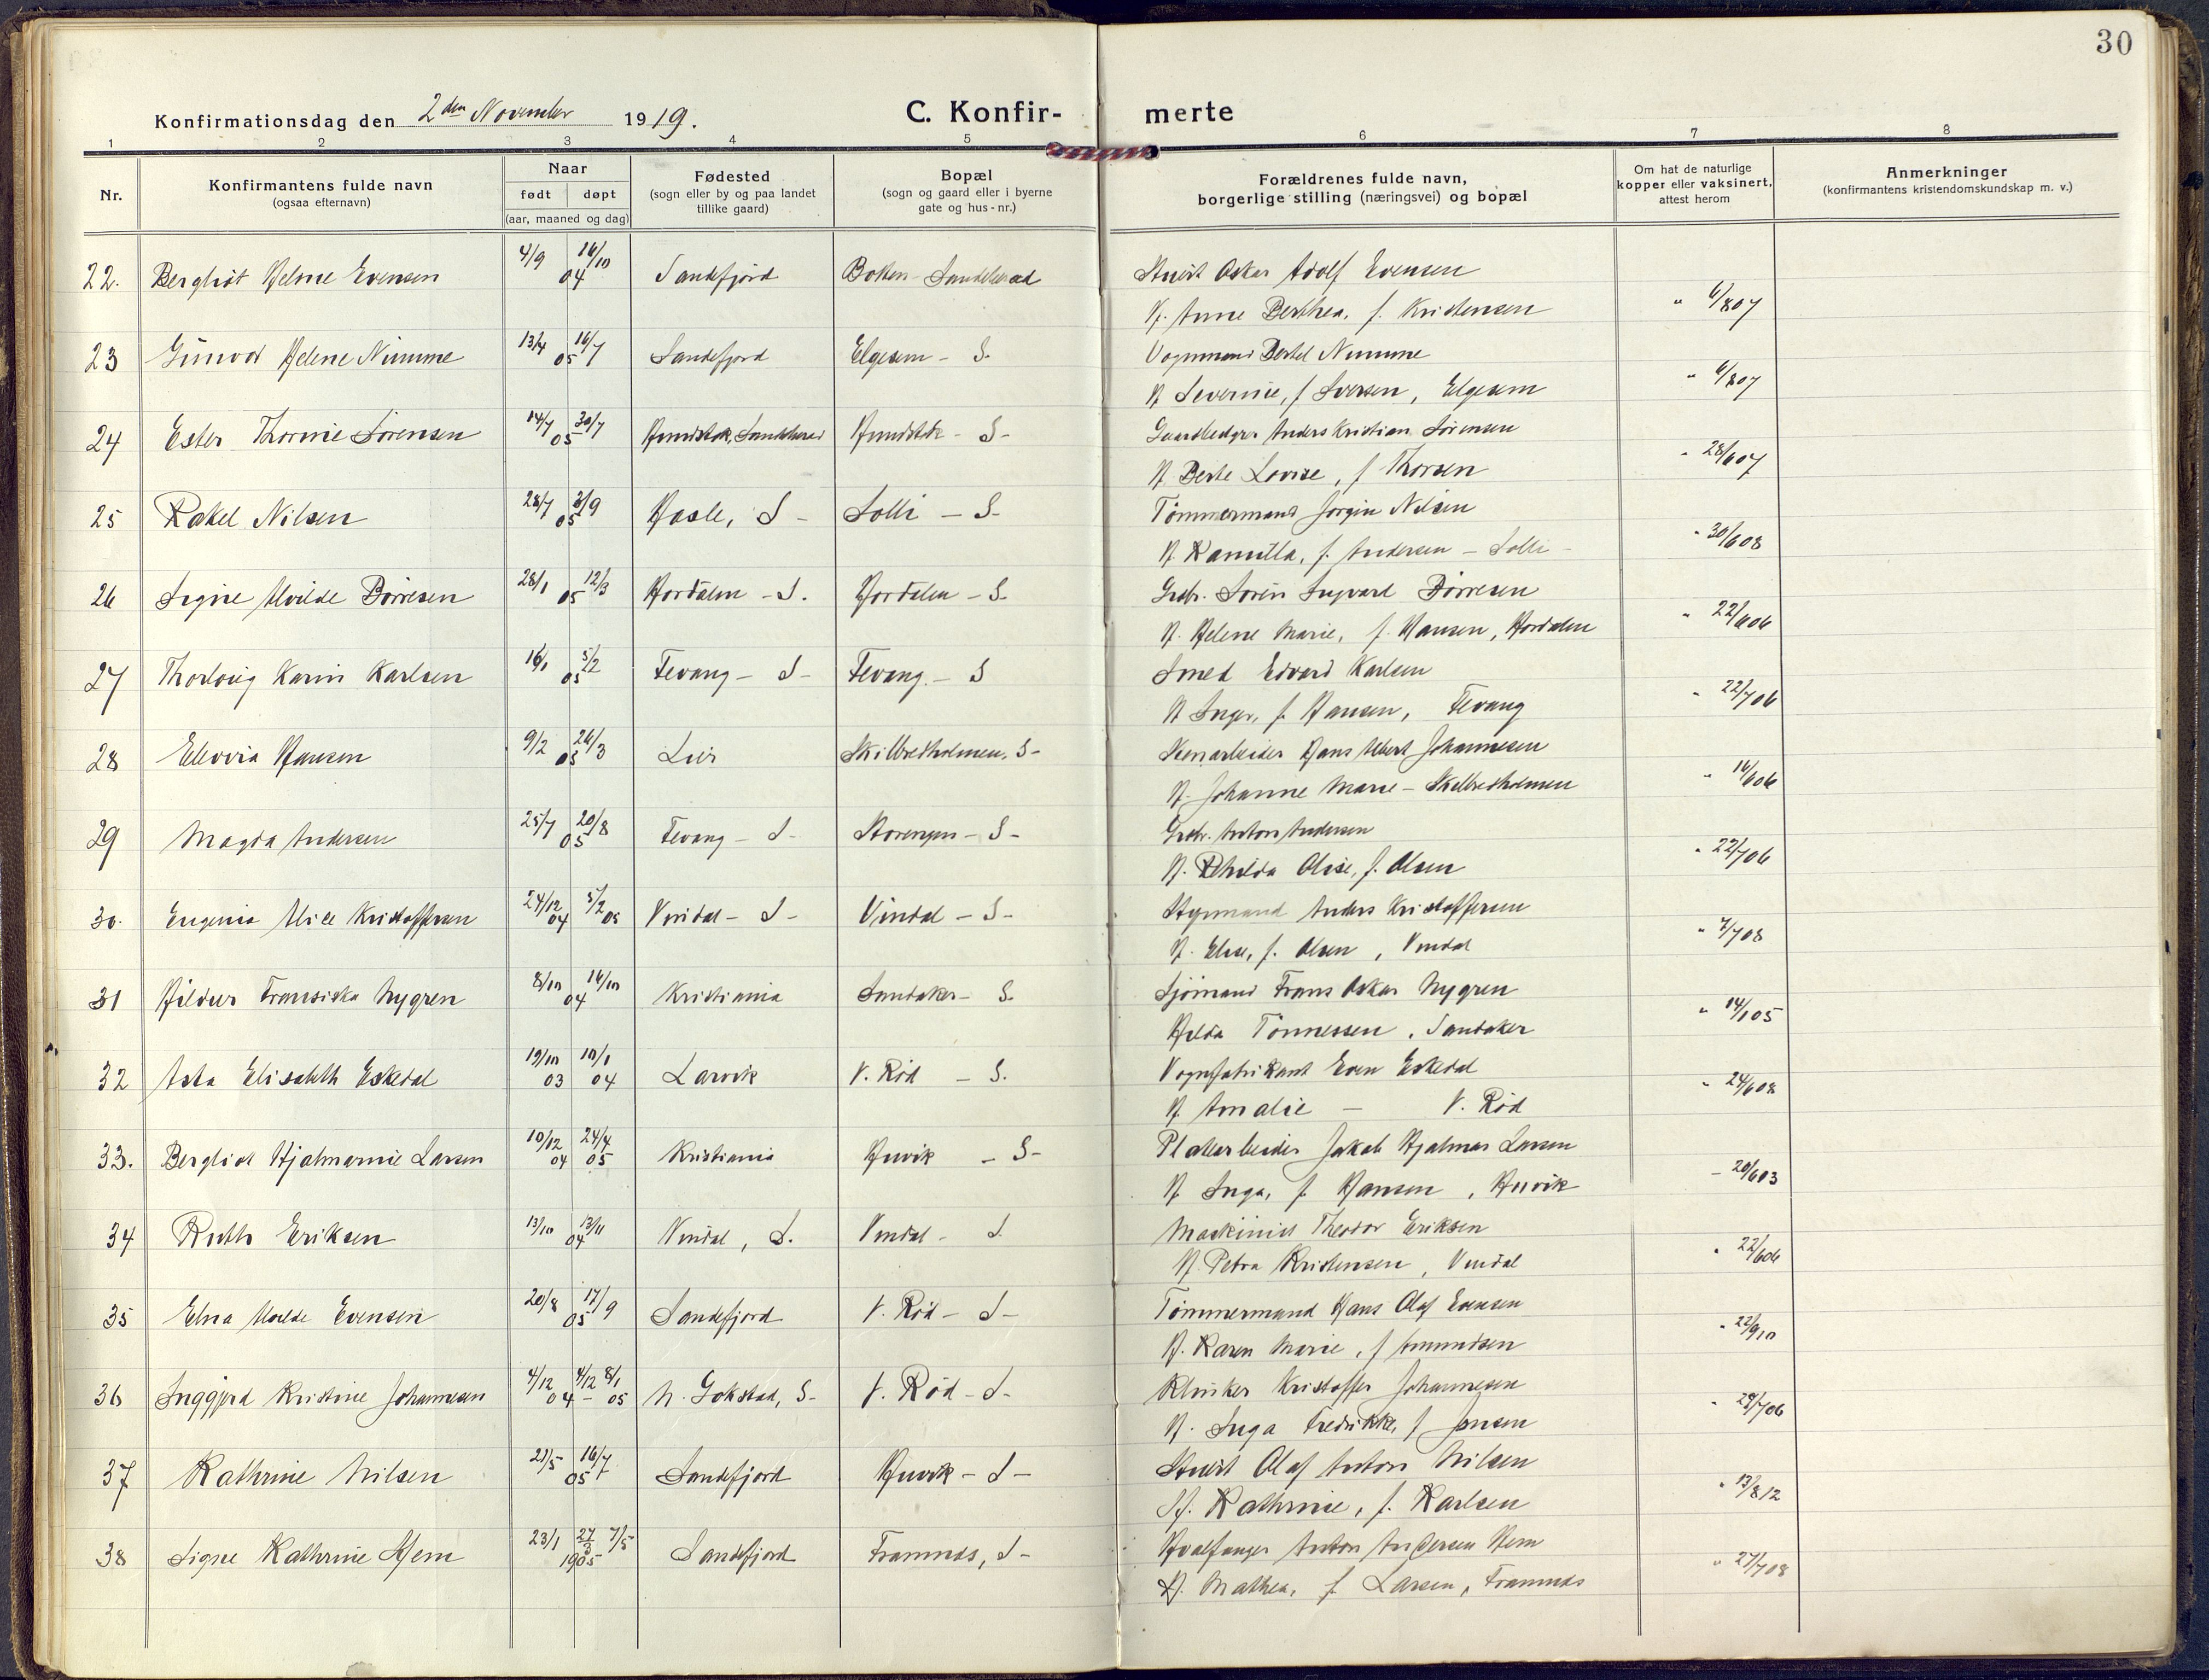 30
Konfirmationsdag den 2den November 1919.
C. Konfir-merte
1 2 3 4 5 6 7 8
Nr.
Konfirmantens fulde navn
(ogsaa efternavn)
Naar
født døpt
(aar, maaned og dag)
Fødested
(sogn eller by og paa landet
tillike gaard)
Bopæl
(sogn og gaard eller i byerne
gate og hus-nr.)
Forældrenes fulde navn,
borgerlige stilling (næringsvei) og bopæl
Om hat de naturlige
kopper eller vaksinert,
attest herom
Anmerkninger
(konfirmantens kristendomskundskap m. v.)
22. Bergliot Helene Evensen 4/9 16/10 04 Sandefjord Sandeherad Oskar Adolf Evensen
H. Anne Berthea, f. Kristensen " 6/807
23 Gunvor Helene Nimme 13/4 16/7 05 Sandefjord Elgesem - S. Vognmand Bertel Nimme
H Severine, f Iversen, Elgesem " 6/807
24 Ester Thorine Sørensen 14/7 30/7 05 Hundstok, Sandeherad Hundstok - S- Anders Kristian Sørensen
H Berte Lovise, f Thorsen " 28/607
25 Rakel Nilsen 28/7 3/9 05 Hasle, S - Solli - S- Tømmermand Jørgin Nilsen
H Kamilla, f. Andersen - Solli - " 30/608
26 Signe Alvilde Børresen 28/1 12/3 05 Hordalen - S. Hordalen - S- Grdbr. Søren Ingvard Børresen
H. Helene Marie, f. Hansen, Hordalen " 22/606
27 Thorborg Karin Karlsen 16/1 5/2 05 Fevang - S - Fevang - S Smed Edvard Karlsen
H Inger, f. Hansen, Fevang " 22/706
28 Hansen 9/2 26/3 05 Lier Skilbredholmen, S- Stenarbeider Hans Albert Johannesen
H. Johanne Marie - Skilbredholmen " 16/606
29 Magda Andersen 25/7 20/8 05 Fevang - S - Storengen - S - Grdbr. Anton Andersen
H. Olise, f. Olsen " 22/706
30. Eugenia Alice Kristoffersen 24/12 04 5/2 05 Vindal - S - Vindal - S - Styrmand Anders Kristoffersen
H. Elise, f. Olsen, Vindal " 7/708
31 Hildur Fransiska Nygren 8/10 16/10 04 Kristiania Sandaker - S. Sjømand Frans Oskar Nygren
Hilda Tønnessen, Sandaker " 14/105
32 Asta Elisabeth Eskedal 19/10 03 10/1 04 Larvik V. Rød - S. Vognfabrikant Even Eskedal
H. Amalie - V. Rød " 24/608
33. Bergliot Hjalmarine Larsen 10/12 04 24/4 05 Kristiania Huvik - S- Platearbeider Jakob Hjalmar Larsen
H Inga, f. Hansen, Huvik - 20/603
34 Ruth Eriksen 13/10 13/11 04 Vindal, S. Vindal - S Maskinist Theodor Eriksen
H. Petra Kristensen, Vindal " 22/606
35 Elna Alvilde Evensen 20/8 17/9 05 Sandefjord V. Rød - S - Tømmermand Hans Olaf Evensen
H. Karen Marie, f Amundsen " 22/910
36 Inggjerd Kristine Johannesen 4/12 04 4/12 - 8/1 05 N. Gokstad, S- V. Rød - S- Klinker Kristoffer Johannesen
H. Inga Fredrikke, f Jensen " 28/706
37 Kathrine Nilsen 21/5 16/7 05 Sandefjord Huvik - S - Olaf Anton Nilsen
H. Kathrine, f. Karlsen " 13/812
38 Signe Kathrine Hem 23/1 27/3 7/5 1905 Sandefjord Framnæs, S - Hvalfanger Anton Andersen Hem
H. Mathea, f. Larsen, Framnæs " 27/708